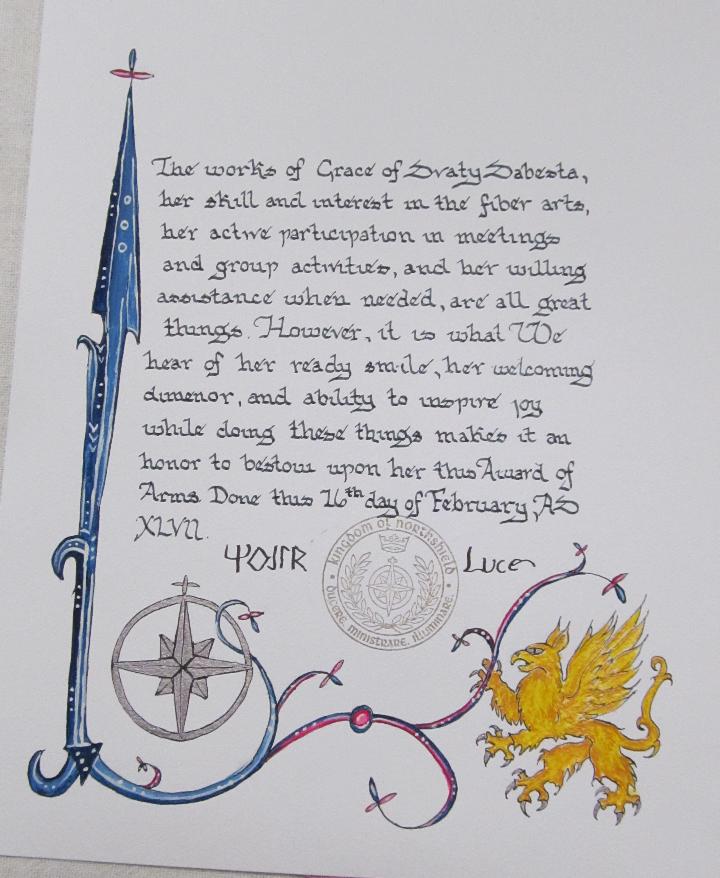 The works of Grace of Svaty Sabesta,
her skill and interest in the fiber arts,
her active participation in meetings
and group activities, and her willing
assistance when needed, are all great
things. However, it is what We
hear of her ready smile, her welcoming
dimenor, and ability to inspire joy
while doing these things makes it an
honor to bestow upon her this Award of
Arms Done this 16th day of February, AS
XLVII.
Luce
kingdom of northshield
DUCERE, MINISTRARE, ILLUMINARE